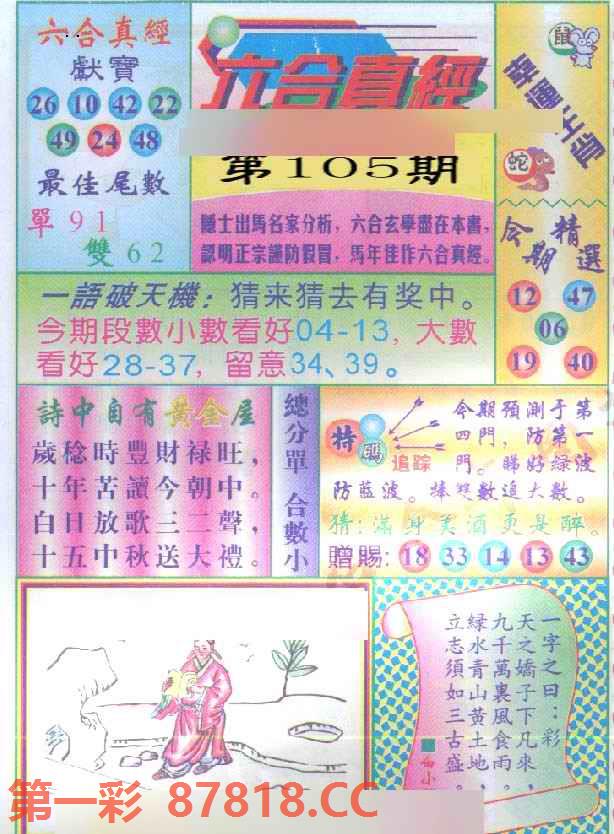 六合真經
獻寶
26 10 42 22
49 24 48
最佳尾數
單 91
雙 62
六合真經
第105期
隱士出馬名家分析，六合玄學盡在本書，
認明正宗謹防假冒，馬年佳作六合真經。
鼠
幸運生肖
蛇
今期精選
12 47
06
19 40
一語破天機：猜来猜去有奖中。
今期段數小數看好04-13，大數
看好28-37，留意34、39。
詩中自有黃金屋
歲稔時豐財祿旺，
十年苦讀今朝中。
白日放歌三二聲，
十五中秋送大禮。
總分單 合數小
特碼追踪
今期預測于第
四門，防第一
門。睇好綠波
防藍波。捧雙數追大數。
猜：滿身美酒更是醉。
贈賜：18 33 14 13 43
一字之曰：彩
天之嬌子下凡來，
九千萬裏風食雨。
綠水青山黃土地，
立志須如三古盛。
第一彩 87818.CC